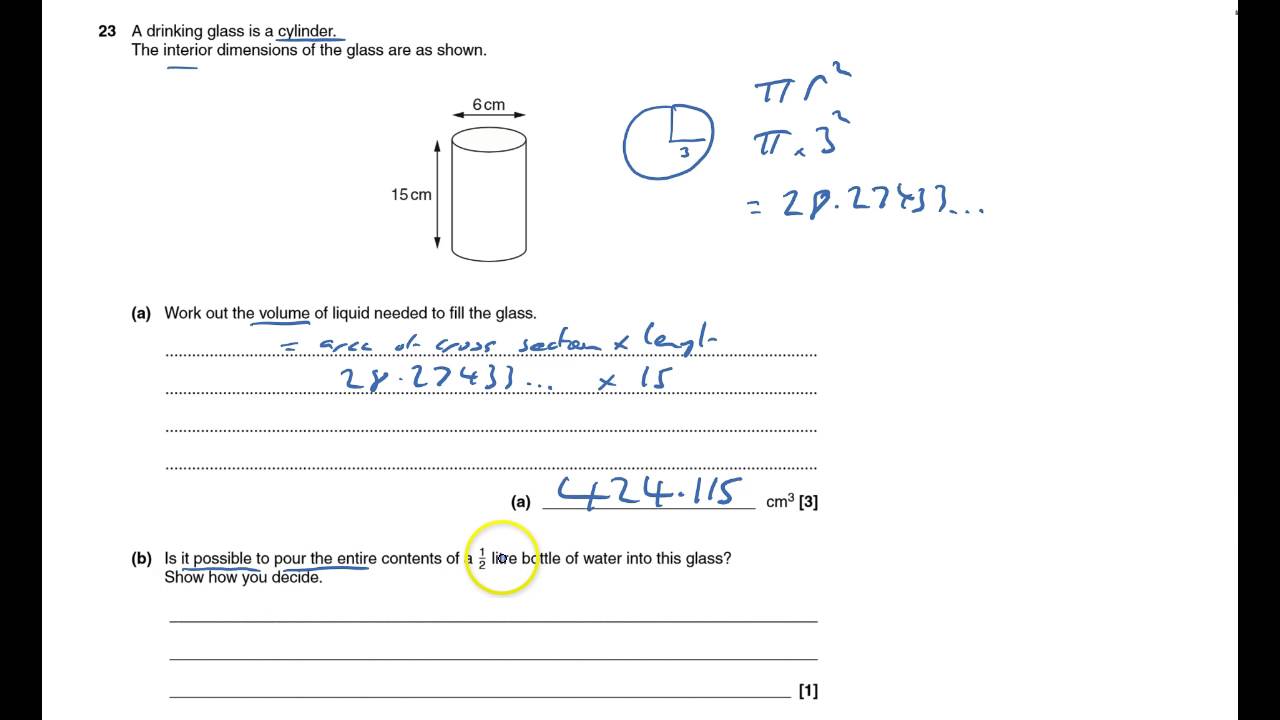 23 A drinking glass is a cylinder.
The interior dimensions of the glass are as shown.
6 cm
15 cm
3
π r²
π × 3²
= 28.27433...
(a) Work out the volume of liquid needed to fill the glass.
= area of cross section × length
28.27433... × 15
(a) 424.115 cm³ [3]
(b) Is it possible to pour the entire contents of a ½ litre bottle of water into this glass?
Show how you decide.
[1]